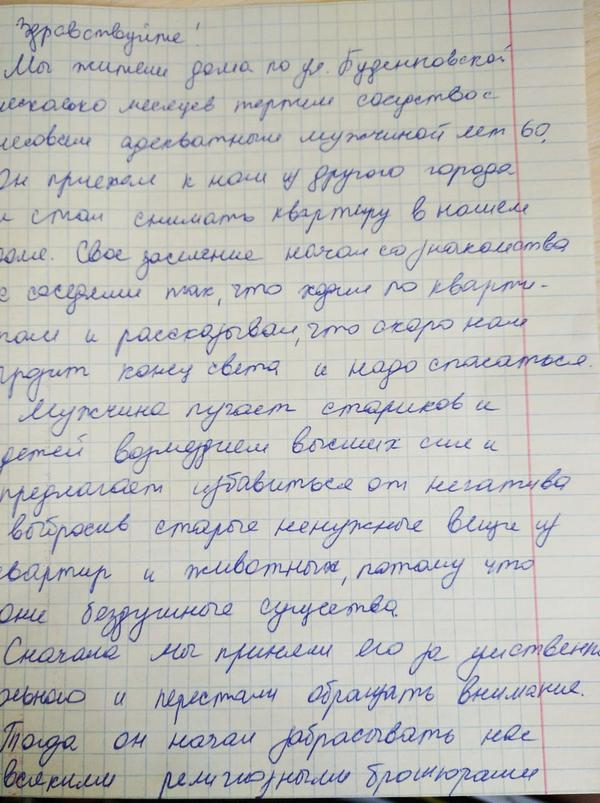 Здравствуйте!
Мы жители дома по ул. Буденновской
несколько месяцев терпим соседство с
несовсем адекватным мужчиной лет 60.
Он приехал к нам из другого города
и стал снимать квартиру в нашем
доме. Свое заселение начал со знакомства
с соседями так, что ходил по кварти-
рам и рассказывал, что скоро нам
грозит конец света и надо спасаться.
Мужчина пугает стариков и
детей возмездием высших сил и
предлагает избавиться от негатива
выбросив старые ненужные вещи из
квартир и животных, потому что
они бездушные существа.
Сначала мы приняли его за умственно
больного и перестали обращать внимание.
Тогда он начал забрасывать нас
всякими религиозными брошюрами